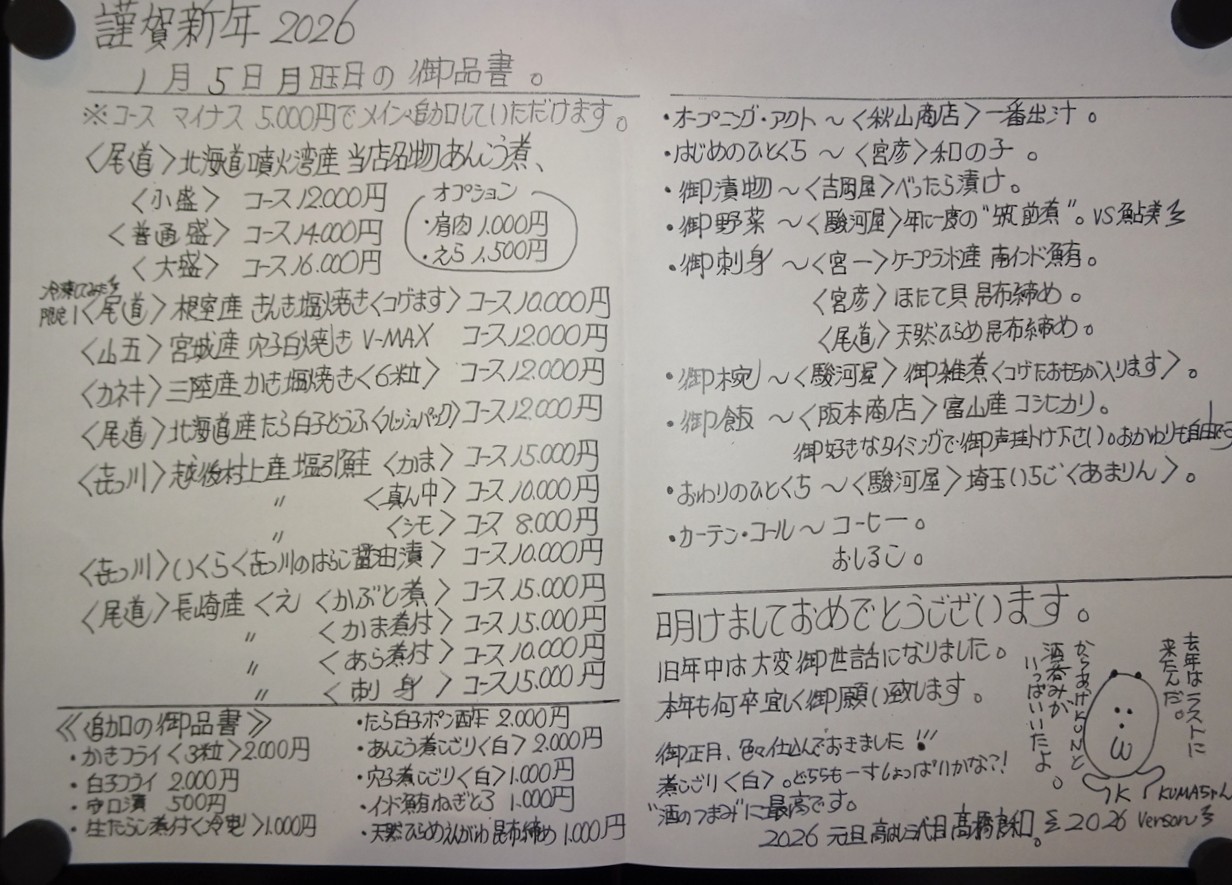 謹賀新年 2026
1月5日月曜日の御品書。
※コース マイナス 5.000円でメイン追加していただけます。
〈尾道〉北海道噴火湾産 当店名物あんこう煮、
〈小盛〉 コース12.000円
〈普通盛〉 コース14.000円
〈大盛〉 コース16.000円
オプション
・肩肉 1.000円
・えら 1,500円
冷凍してみた
限定1〈尾道〉根室産 きんき塩焼き〈コゲます〉コース10.000円
〈山五〉宮城産 穴子白焼き V-MAX コース12.000円
〈カネキ〉三陸産 かき塩焼き〈6粒〉 コース12.000円
〈尾道〉北海道産たら白子どうふ〈フレッシュパック〉コース12.000円
〈㐂っ川〉越後村上産 塩引鮭 〈かま〉 コース15.000円
〃 〈真ん中〉 コース10.000円
〃 〈シモ〉 コース 8.000円
〈㐂っ川〉いくら〈㐂っ川のはらこ醤油漬〉 コース10.000円
〈尾道〉長崎産 くえ 〈かぶと煮〉 コース15.000円
〃 〈かま煮付〉 コース15.000円
〃 〈あら煮付〉 コース10.000円
〃 〈刺身〉 コース15.000円
《追加の御品書》
・かきフライ〈3粒〉2.000円
・白子フライ 2.000円
・守口漬 500円
・生たらこ煮付〈冷製〉1.000円
・たら白子ポン酢 2.000円
・あんこう煮こごり〈白〉2.000円
・穴子煮こごり〈白〉1.000円
・インド鮪ねぎとろ 1.000円
・天然ひらめえんがわ 昆布締め 1.000円
・オープニング・アクト～〈秋山商店〉一番出汁。
・はじめのひとくち～〈宮彦〉和の子。
・御漬物～〈吉岡屋〉べったら漬け。
・御野菜～〈駿河屋〉年に一度の"筑前煮"。VS 鮎煮
・御刺身～〈宮一〉ケープランド産 南インド鮪。
〈宮彦〉ほたて貝 昆布締め。
〈尾道〉天然ひらめ 昆布締め。
・御椀～〈駿河屋〉御雑煮〈コゲたおもちが入ります〉。
・御飯～〈阪本商店〉富山産 コシヒカリ。
御好きなタイミングで御声掛け下さい。おかわりも自由
・おわりのひとくち～〈駿河屋〉埼玉いちご〈あまりん〉。
・カーテン・コール～コーヒー。
おしるこ。
明けましておめでとうございます。
旧年中は大変御世話になりました。
本年も何卒宜しく御願い致します。
御正月、色々仕込んでおきました!!!
煮こごり〈白〉。どちらも一すしょっぱいかな?!
"酒のつまみ"に最高です。
2026 元旦 高はし三代目 高橋良和。
2026 Verson
去年はラストに
来たんだ。
からあげKUNと
酒呑みが
いっぱいいたよ。
K
KUMAちゃん